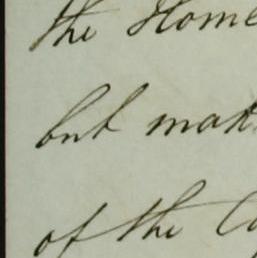 the Home
but mak
of the